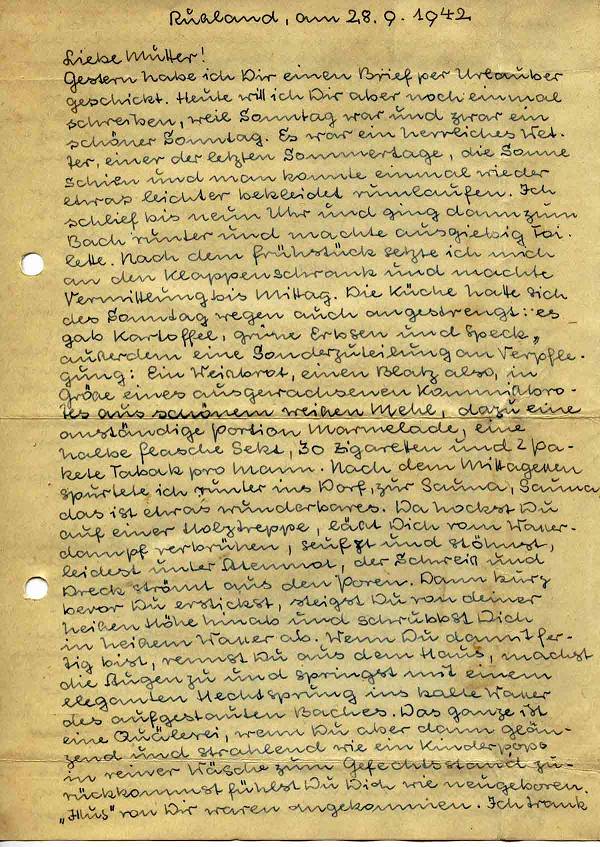 Rußland, am 28.9.1942
Liebe Mutter!
Gestern habe ich Dir einen Brief per Urlauber
geschickt. Heute will ich Dir aber noch einmal
schreiben, weil Sonntag war und zwar ein
schöner Sonntag. Es war ein herrliches Wet-
ter, einer der letzten Sommertage, die Sonne
schien und man konnte einmal wieder
etwas leichter bekleidet rumlaufen. Ich
schlief bis neun Uhr und ging dann zum
Bach runter und machte ausgiebig Toi-
lette. Nach dem Frühstück setzte ich mich
an den Klappenschrank und machte
Vermittlung bis Mittag. Die Küche hatte sich
des Sonntag wegen auch angestrengt: es
gab Kartoffel, grüne Erbsen und Speck,
außerdem eine Sonderzuteilung an Verpfle-
gung: Ein Weißbrot, einen Blatz also, in
Größe eines ausgewachsenen Kommißbro-
tes aus schönem weißen Mehl, dazu eine
anständige Portion Marmelade, eine
halbe Flasche Sekt, 30 Zigaretten und 2 Pa-
kete Tabak pro Mann. Nach dem Mittagessen
spurtete ich runter ins Dorf, zur Sauna, Sauna
das ist etwas wunderbares. Da hockst Du
auf einer Holztreppe, läßt Dich vom Wasser-
dampf verbrühen, seufzt und stöhnst,
leidest unter Atemnot, der Schweiß und
Dreck strömt aus den Poren. Dann kurz
bevor Du erstickst, steigst Du von deiner
heißen Höhe hinab und schrubbst Dich
in heißem Wasser ab. Wenn Du damit fer-
tig bist, rennst Du aus dem Haus, machst
die Augen zu und springst mit einem
eleganten Hechtsprung ins kalte Wasser
des aufgestauten Baches. Das ganze ist
eine Quälerei, wenn Du aber dann glän-
zend und strahlend wie ein Kinderpopo
in reiner Wäsche zum Gefechtsstand zu-
rückkommst fühlst Du Dich wie neugeboren.
von Dir waren angekommen. Ich trank